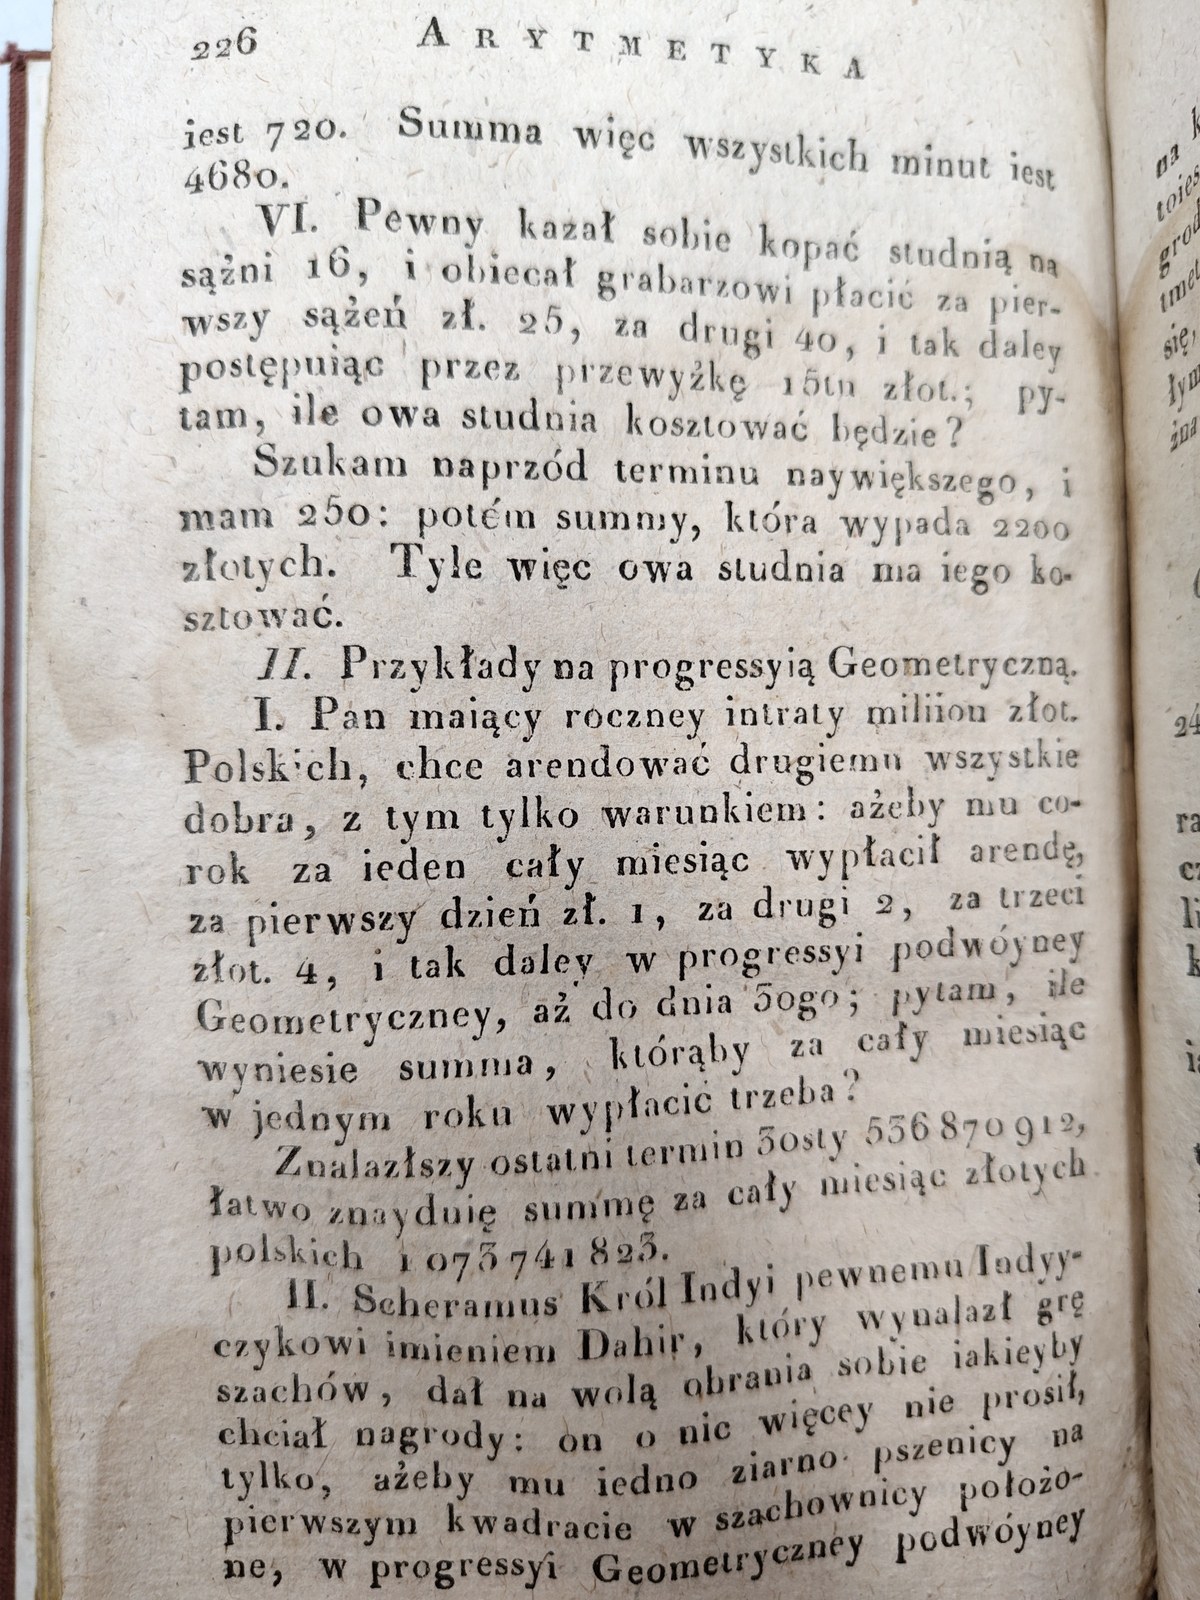 226 ARYTMETYKA
iest 720. Summa więc wszystkich minut iest
4680.
VI. Pewny kazał sobie kopać studnią na
sążni 16, i obiecał grabarzowi płacić za pier-
wszy sążeń zł. 25, za drugi 40, i tak daley
postępuiąc przez przewyżkę 15tu złot.; py-
tam, ile owa studnia kosztować będzie?
Szukam naprzód terminu naywiększego, i
mam 250: potém summy, która wypada 2200
złotych. Tyle więc owa studnia ma iego ko-
sztować.
II. Przykłady na progressyią Geometryczną.
I. Pan maiący roczney intraty miliion złot.
Polskich, chce arendować drugiemu wszystkie
dobra, z tym tylko warunkiem: ażeby mu co-
rok za ieden cały miesiąc wypłacił arendę,
za pierwszy dzień zł. 1, za drugi 2, za trzeci
złot. 4, i tak daley w progressyi podwóyney
Geometryczney, aż do dnia 30go; pytam, ile
wyniesie summa, którąby za cały miesiąc
w jednym roku wypłacić trzeba?
Znalazłszy ostatni termin 30sty 536 870 912,
łatwo znayduię summę za cały miesiąc złotych
polskich 1 073 741 823.
II. Scheramus Król Indyi pewnemu Indyy-
czykowi imieniem Dahir, który wynalazł grę
szachów, dał na wolą obrania sobie iakieyby
chciał nagrody: on o nic więcey nie prosił,
tylko, ażeby mu iedno ziarno pszenicy na
pierwszym kwadracie w szachownicy położo-
ne, w progressyi Geometryczney podwóyney